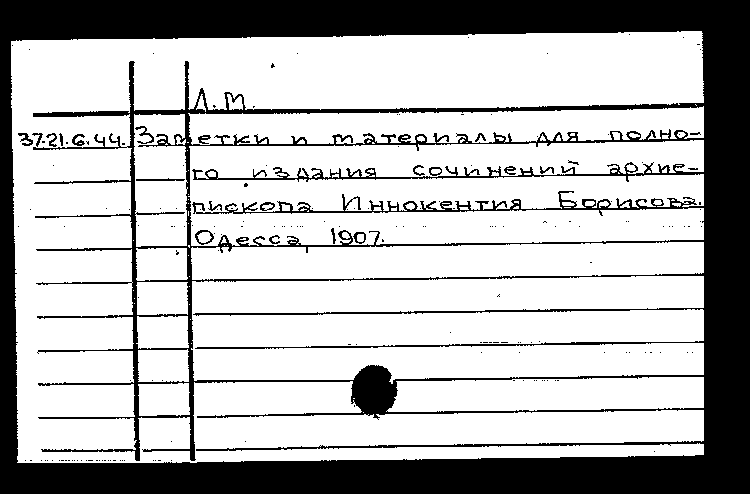 Л.М.
37.21.6.44. Заметки и материалы для полно-
го издания сочинений архие-
пископа Иннокентия Борисова.
Одесса, 1907.